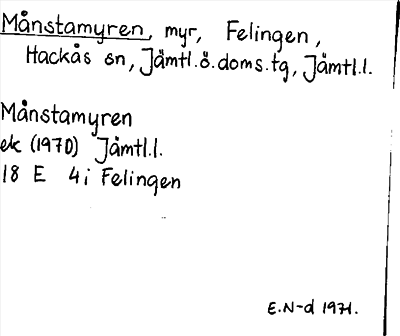 Månstamyren, myr, Felingen,
Hackås sn, Jämtl.ö.doms.tg, Jämtl.l.
Månstamyren
ek (1970) Jämtl.l.
18 E 4i Felingen
E.N-d 1971.